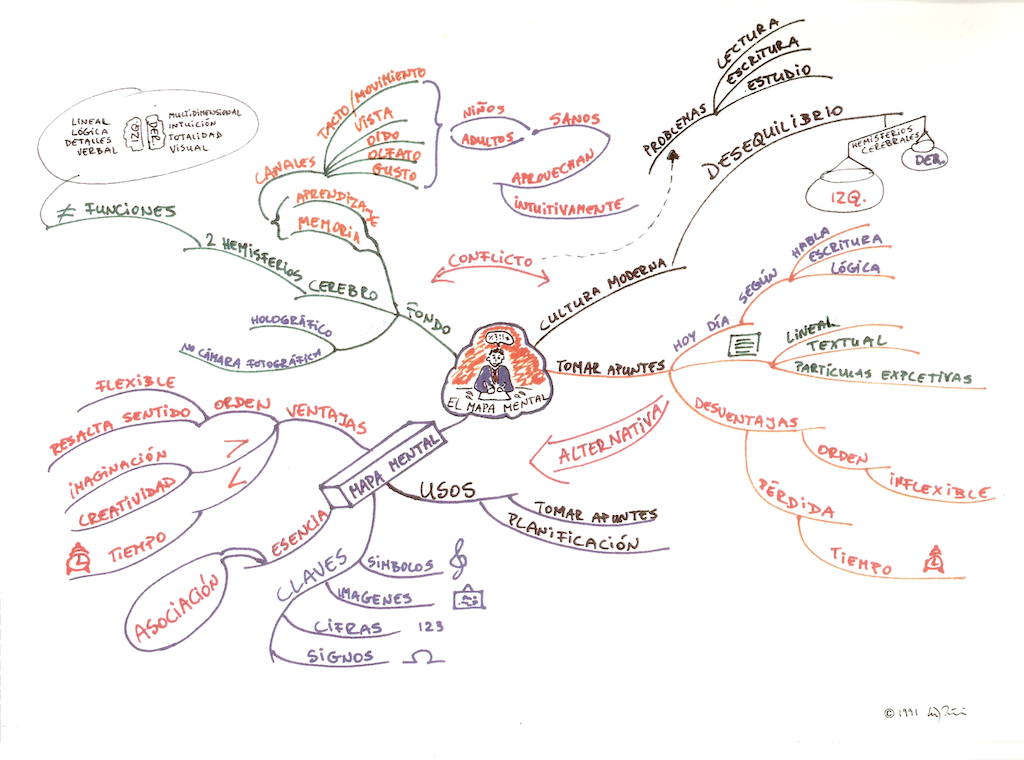 LINEAL
LÓGICA
DETALLES
VERBAL
IZQ
DER
MULTIDIMENSIONAL
INTUICIÓN
TOTALIDAD
VISUAL
≠ FUNCIONES
2 HEMISFERIOS
CEREBRO
FONDO
HOLOGRÁFICO
NO CÁMARA FOTOGRÁFICA
CANALES
TACTO/MOVIMIENTO
VISTA
OÍDO
OLFATO
GUSTO
APRENDIZAJE
MEMORIA
NIÑOS
ADULTOS
SANOS
APROVECHAN
INTUITIVAMENTE
CONFLICTO
PROBLEMAS
LECTURA
ESCRITURA
ESTUDIO
DESEQUILIBRIO
HEMISFERIOS
CEREBRALES
IZQ.
DER.
CULTURA MODERNA
EL MAPA MENTAL
TOMAR APUNTES
HOY DÍA
SEGÚN
HABLA
ESCRITURA
LÓGICA
LINEAL
TEXTUAL
PARTÍCULAS EXPLETIVAS
DESVENTAJAS
ORDEN
INFLEXIBLE
PÉRDIDA
TIEMPO
ALTERNATIVA
MAPA MENTAL
VENTAJAS
ORDEN
FLEXIBLE
RESALTA SENTIDO
>
IMAGINACIÓN
CREATIVIDAD
<
TIEMPO
ESENCIA
ASOCIACIÓN
CLAVES
SÍMBOLOS
IMAGENES
CIFRAS 123
SIGNOS
USOS
TOMAR APUNTES
PLANIFICACIÓN
© 1991